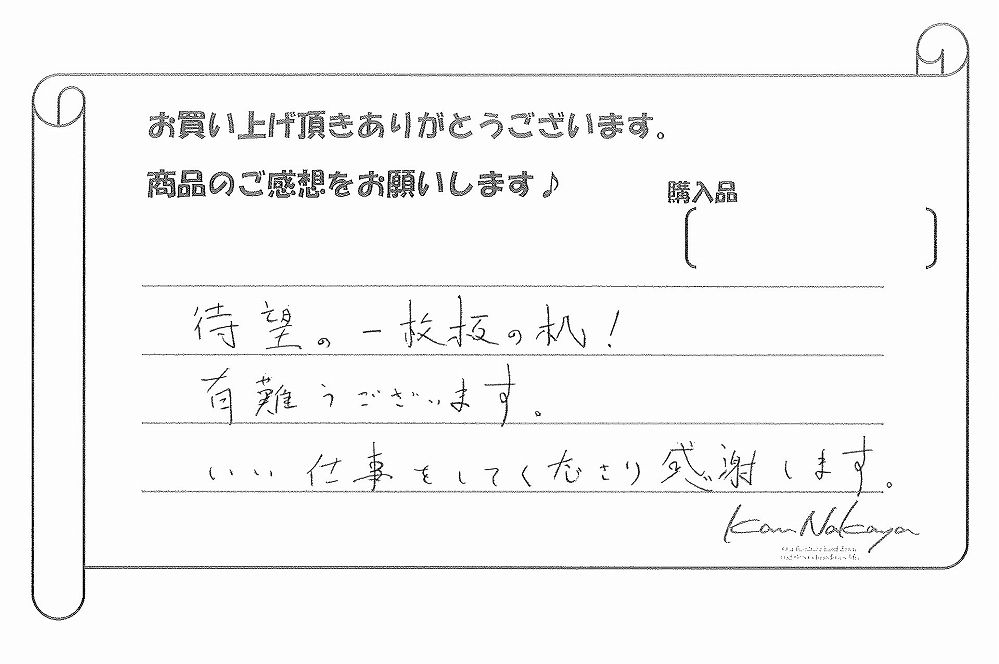 お買い上げ頂きありがとうございます。
商品のご感想をお願いします♪
購入品
待望の一枚板の机!
有難うございます。
いい仕事をしてくださり感謝します。
KanNakaya